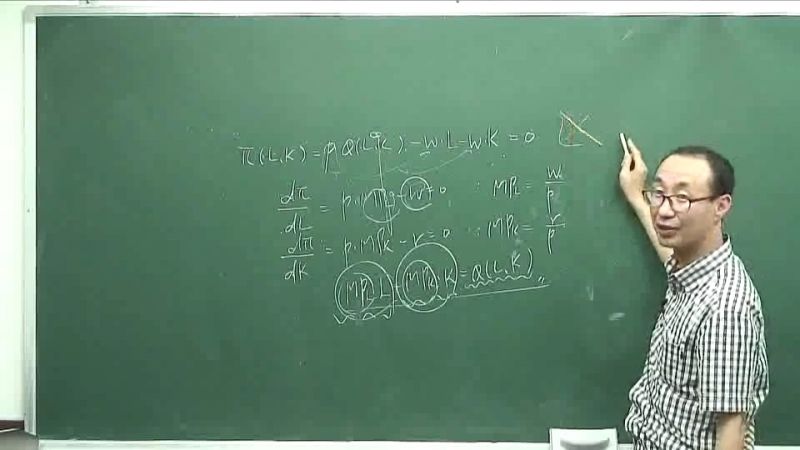 π(L,K) = p Q(L,K) - w·L - w·K = 0
dπ/dL = p·MPL - w = 0 ∴ MPL = w/p
dπ/dK = p·MPK - r = 0 ∴ MPK = r/p
MPL·L + MPK·K = Q(L,K)